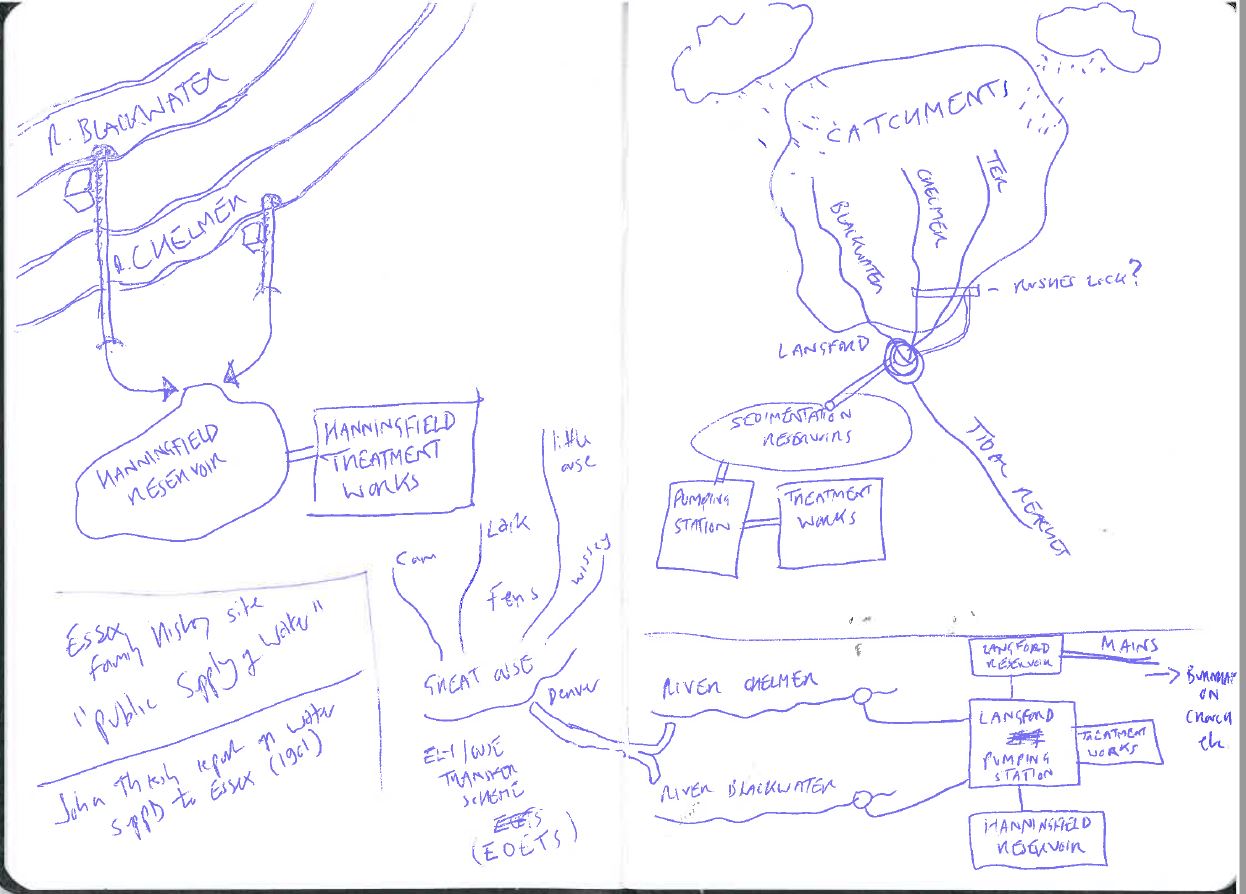 R. BLACKWATER
R. CHELMER
HANNINGFIELD
RESERVOIR
HANNINGFIELD
TREATMENT
WORKS
little
ouse
Lark
Cam
Fens
Wissey
GREAT OUSE
Denver
ELY/OUSE
TRANSFER
SCHEME
(EOETS)
Essex
family history site
"public supply of water"
John Thresh report on water
supp to Essex (1901)
CATCHMENTS
BLACKWATER
CHELMER
TER
- RUSHES LOCK?
LANGFORD
SEDIMENTATION
RESERVOIRS
PUMPING
STATION
TREATMENT
WORKS
TIDAL REACHES
RIVER CHELMER
RIVER BLACKWATER
LANGFORD
RESERVOIR
MAINS
ON
CROUCH
etc.
LANGFORD
PUMPING
STATION
TREATMENT
WORKS
HANNINGFIELD
RESERVOIR